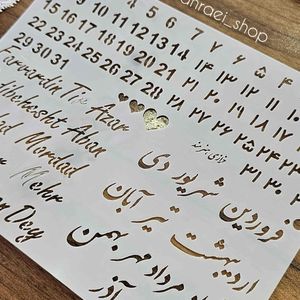 _shop
4 5 6 7
11 12 13 14
15 16 17 18 19 20 21
22 23 24 25 26 27 28
29 30 31
۷ ۶ ۵ ۴
۱۴ ۱۳ ۱۲ ۱۱
۲۱ ۲۰ ۱۹ ۱۸
۲۸ ۲۷ ۲۶ ۲۵ ۲۴
۳۱ ۳۰
Farvardin Tir Azar
Aban
Mordad
Mehr
Dey
شهریور دی
فروردین تیر آبان
اردیبهشت
مرداد مهر بهمن
آذر